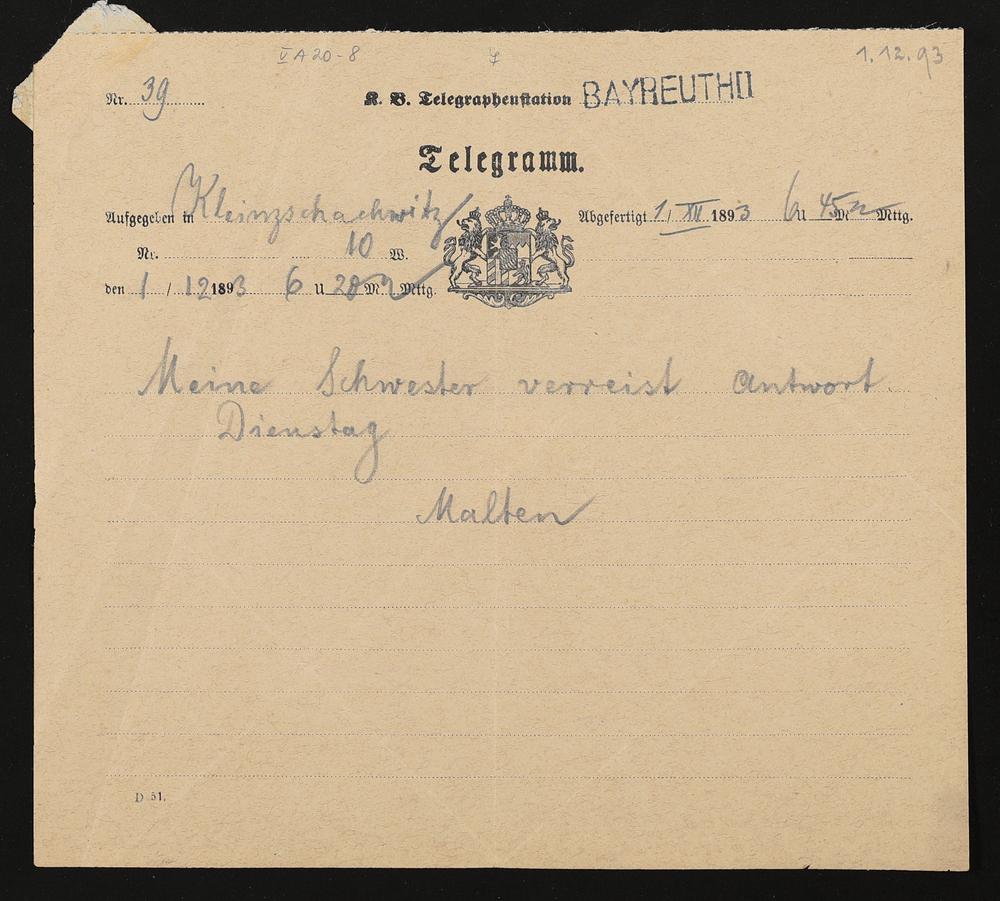 V A 20-8
1.12.93
Nr. 39
K. B. Telegraphenstation BAYREUTH II
Telegramm.
Aufgegeben in Kleinzschachwitz
Abgefertigt 1/XII 1893 6 U 45 M n Mttg.
Nr. 10 W.
den 1 / 12 1893 6 U 28 M n Mttg.
Meine Schwester verreist Antwort
Dienstag
Malten
D 51.